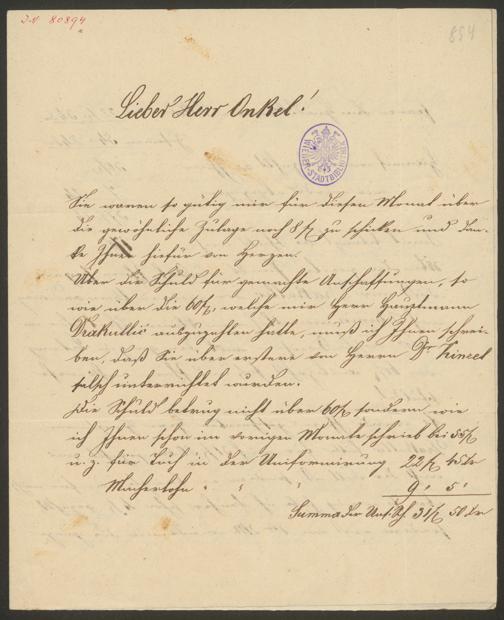 I.N. 80894
854
Lieber Herr Onkel!
WIENER STADTBIBLIOTHEK
Sie waren so gütig mir für diesen Monat über
die gewöhnliche Zulage noch 8 fl zu schicken und dan-
ke Ihnen hiefür von Herzen.
Über die Schuld für gemachte Anschaffungen, so
wie über die 60 fl, welche mir Herr Hauptmann
Drakullić auszuzahlen hatte, muß ich Ihnen schrei-
ben, daß Sie über erstere von Herrn Dr
falsch unterrichtet wurden.
Die Schuld betrug nicht über 60 fl sondern wie
ich Ihnen schon im vorigen Monate schrieb bei 55 fl
u. z. für Tuch in der Uniformirung 22 fl 45 kr
Macherlohn " " " 9 " 5 "
Summa der 31 fl 50 kr